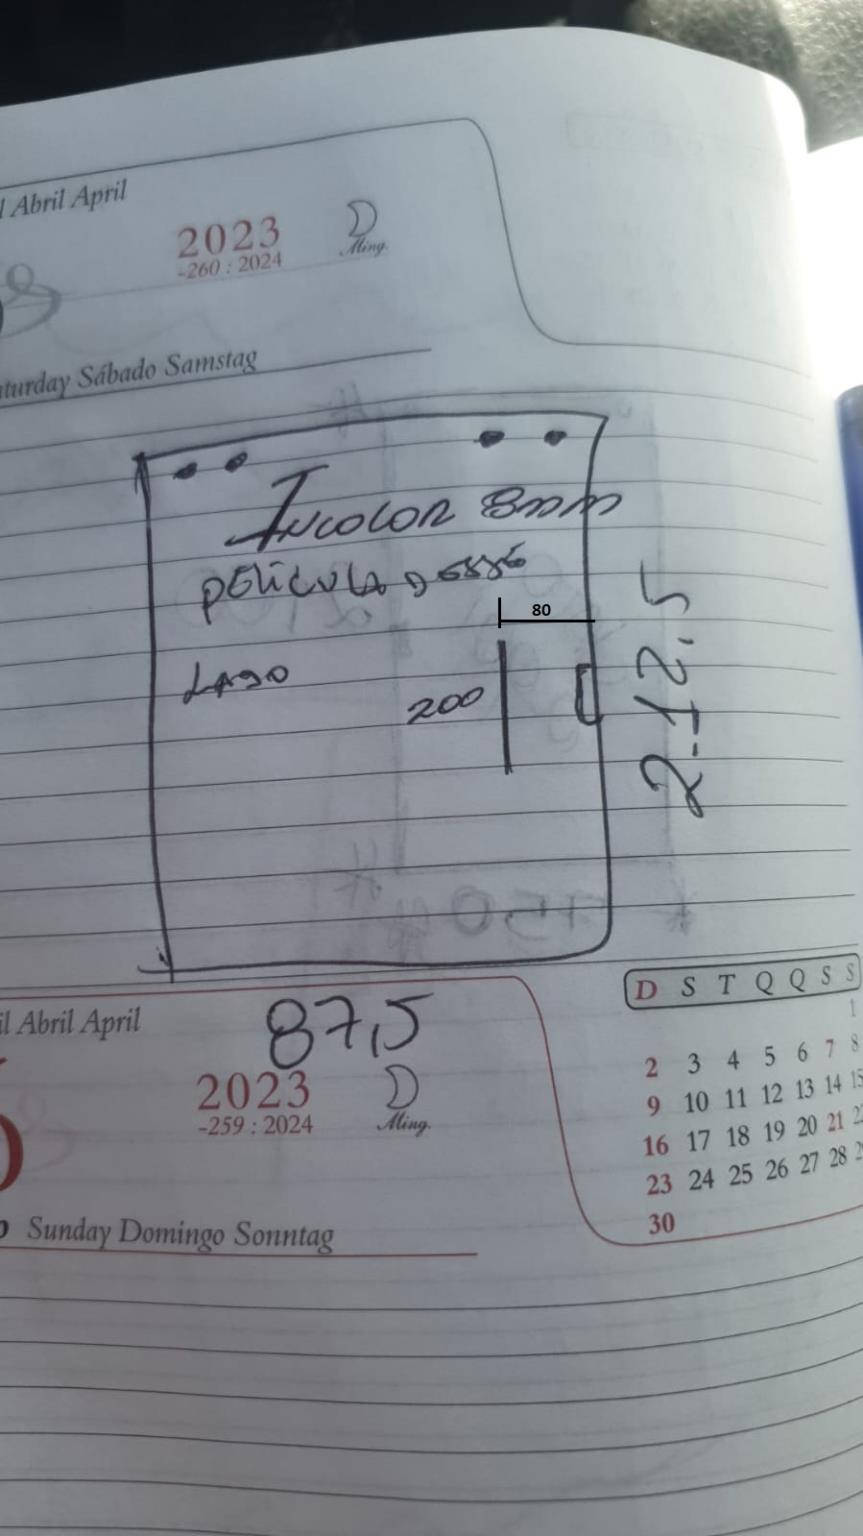 Abril April
2023
-260 : 2024
Ming.
aturday Sábado Samstag
INCOLOR 8mm
PELÍCULA DESSE
LADO
80
200
2-12,5
87,5
il Abril April
2023
-259 : 2024
Ming.
Sunday Domingo Sonntag
D S T Q Q S S
1
2 3 4 5 6 7 8
9 10 11 12 13 14 15
16 17 18 19 20 21 2
23 24 25 26 27 28 2
30